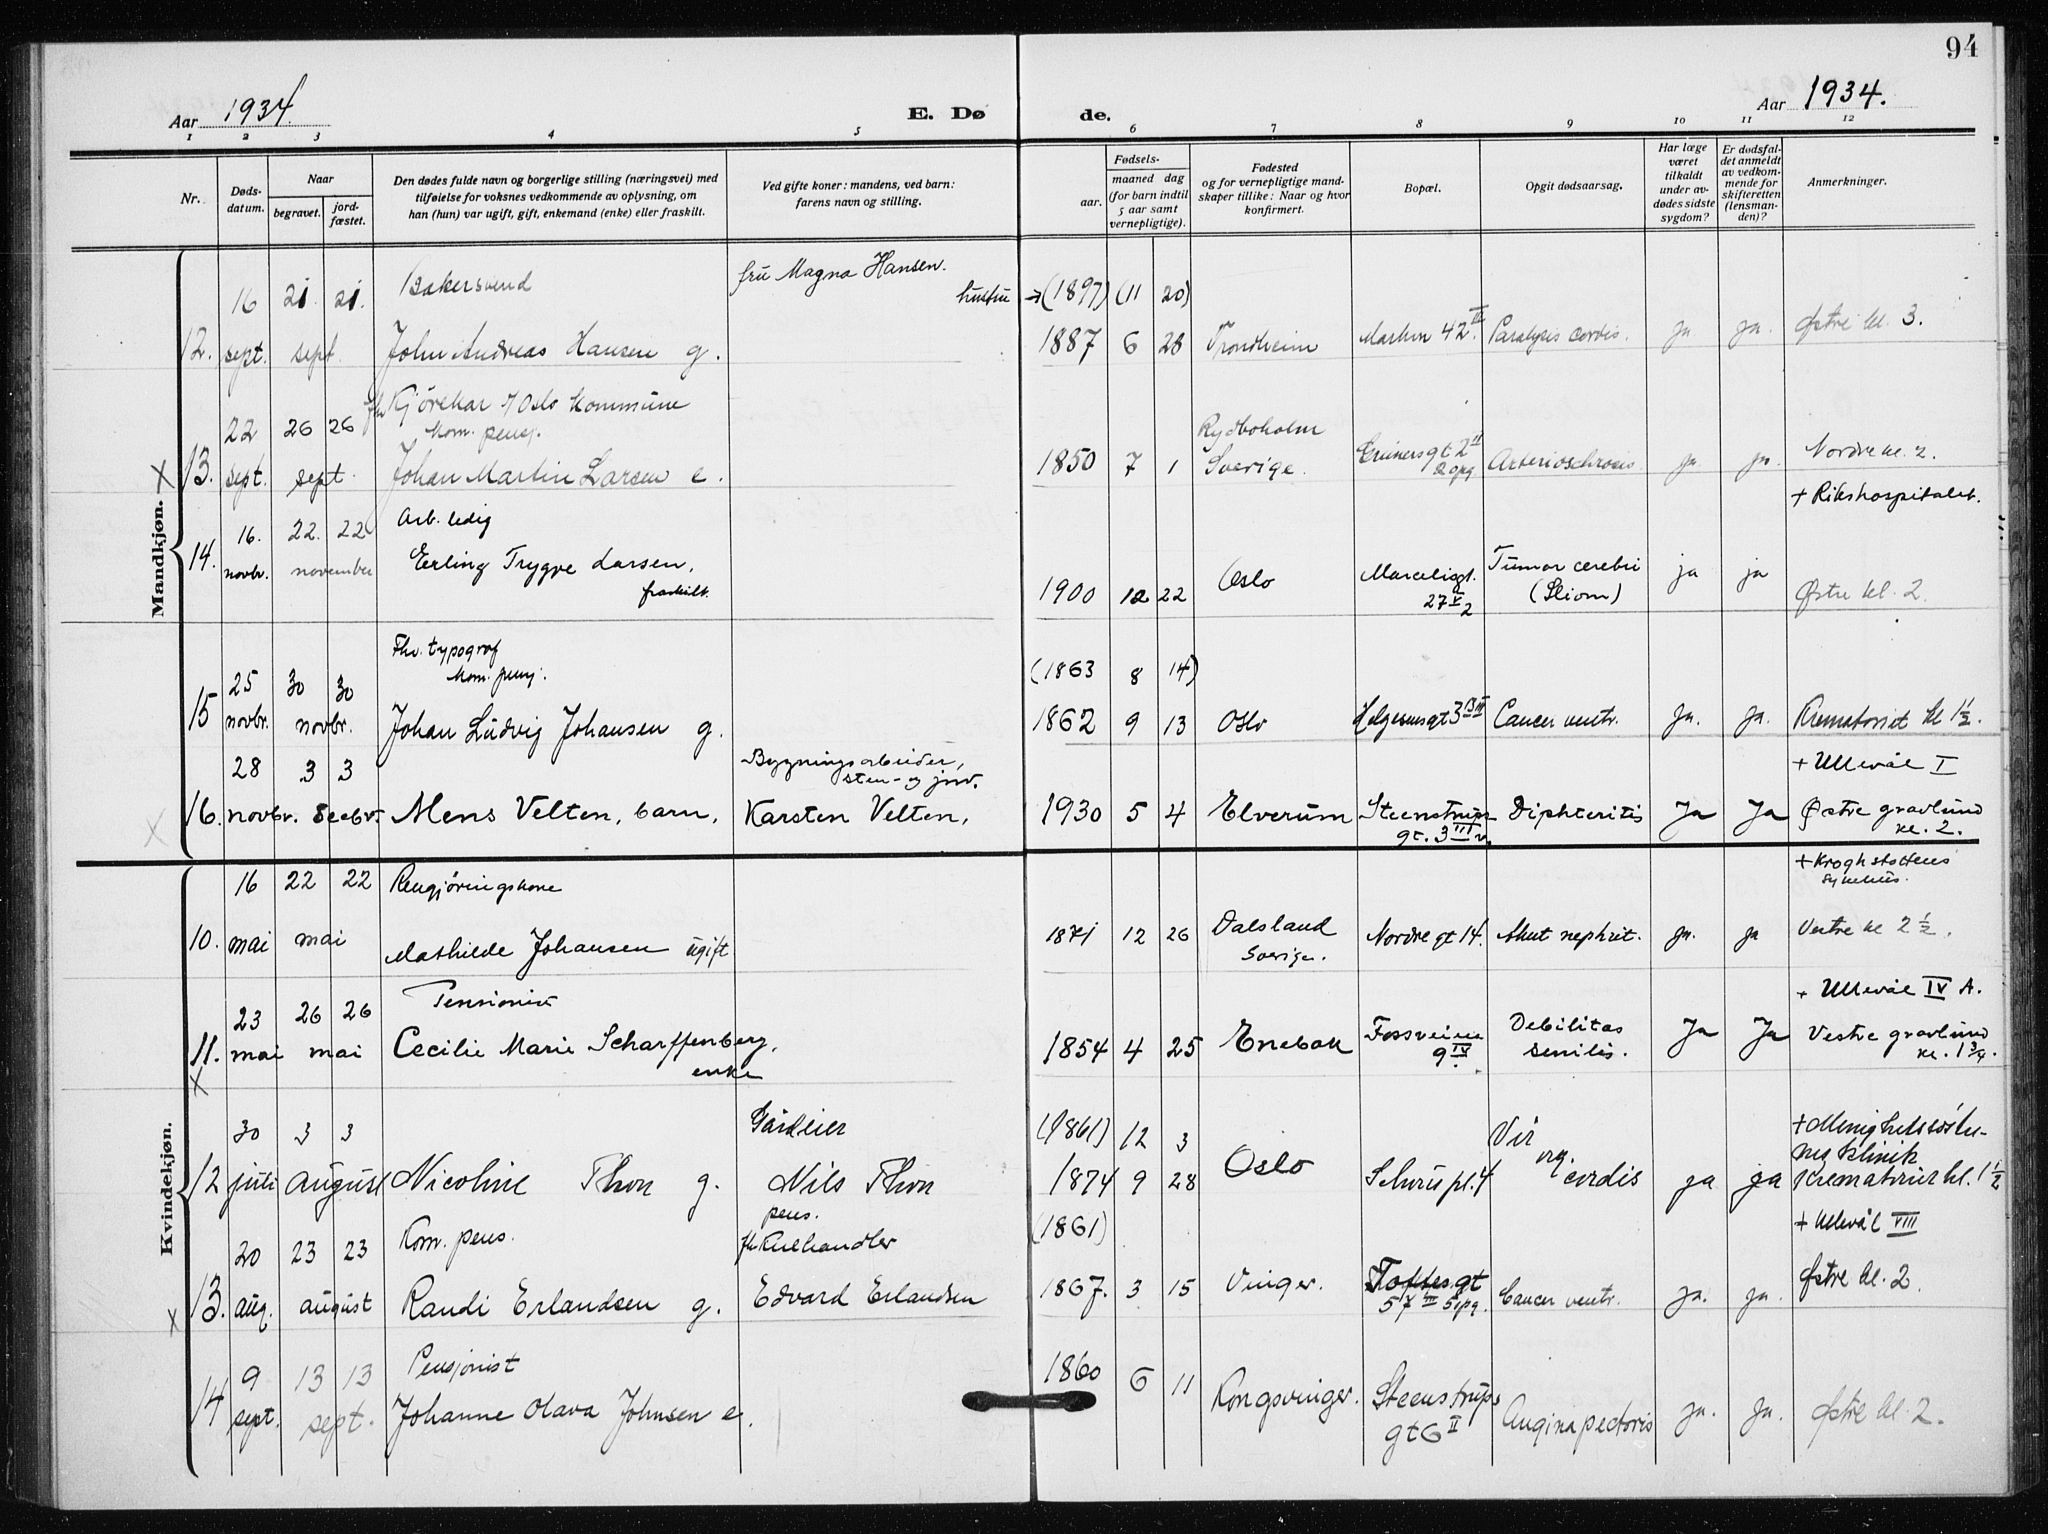 94
Aar 1934.
E. Dø
de.
Aar 1934.
1 2 3 4 5 6 7 8 9 10 11 12
Nr.
Døds-
datum.
Naar
begravet.
jord-
fæstet.
Den dødes fulde navn og borgerlige stilling (næringsvei) med
tilføielse for voksnes vedkommende av oplysning, om
han (hun) var ugift, gift, enkemand (enke) eller fraskilt.
Ved gifte koner: mandens, ved barn:
farens navn og stilling.
Fødsels-
aar.
maaned dag
(for barn indtil
5 aar samt
vernepligtige).
Fødested
og for vernepligtige mand-
skaper tillike: Naar og hvor
konfirmert.
Bopæl.
Opgit dødsaarsag.
Har læge
været
tilkaldt
under av-
dødes sidste
sygdom?
Er dødsfal-
det anmeldt
av vedkom-
mende for
skifteretten
(lensman-
den)?
Anmerkninger.
Mandkjøn.
16 21. 21. Bakersvend fru Magna Hansen.
hustru → (1897) (11 20)
12. sept. sept. John Andreas Hansen g. 1887 6 28 Trondheim Marken 42 III. Paralysis cordis. ja ja. Østre kl. 3.
22 26 26 fhv Kjørekar v/Oslo kommune
kom. pensj.
Rydboholm
X 13. sept. sept. Johan Martin Larsen e. 1850 7 1 Sverige. Grünersgt 2 II
2 opg Arteriosclrosis ja ja. Nordre kl. 2.
+ Rikshospitalet.
16. 22. 22 Arb. ledig
14. novbr. november Erling Trygve Larsen,
fraskilt.
1900 12 22 Oslo Marceliusgt.
27 V 2
Tumor cerebri
(Gliom)
ja ja Østre kl. 2.
Fhv. typograf
kom. pensj.
(1863 8 14)
25 30 30
15 novbr. novbr. Johan Ludvig Johansen g. 1862 9 13 Oslo Helgesensgt 3 B III Cancer ventr. ja. ja. Krematoriet kl 1½.
28 3 3 Bygningsarbeider,
sten- og jord.
+ Ullevål I
16. novbr. Decbr. Mens Velten, barn, Karsten Velten, 1930 5 4 Elverum Steenstrups
gt. 3 III v. Diphteritis Ja Ja Østre gravlund
kl. 2.
Kvindekjøn.
16 22 22 Rengjøringskone + Kroghstøttens
sykehus.
10. mai mai Mathilde Johansen ugift 1871 12 26 Dalsland
Sverige. Nordregt 14. Akut nephrit. ja. ja Vestre kl 2½.
23 26 26 Pensionist + Ullevål IV A.
11. mai mai Cecilie Marie Scharffenberg,
enke
X
1854 4 25 Enebak Fossveien
9 IV. Debilitas
senilis. Ja Ja Vestre gravlund
kl. 1¾.
30 3 3 Gårdeier (1861) 12 3 + Menighetssøstre-
nes klinik
12 juli august Nicoline Thon g. Nils Thon 1874 9 28 Oslo Schous pl. 4 Vit
org. cordis ja ja Krematoriet kl. 1½
pens.
(1861)
+ Ullevål VIII
20 23 23 Kom. pens. fhv Kulhandler
X 13. aug. august Randi Erlandsen g. Edvard Erlandsen 1867. 3 15 Vinger. Toftesgt
57 III 5 opg. Cancer ventr. ja. ja. Østre kl. 2
9 13 13 Pensjonist
14 sept. sept. Johanne Olava Johnsen e. 1860 6 11 Kongsvinger. Steenstrups
gt 6 II Angina pectoris ja. ja. Østre kl. 2.